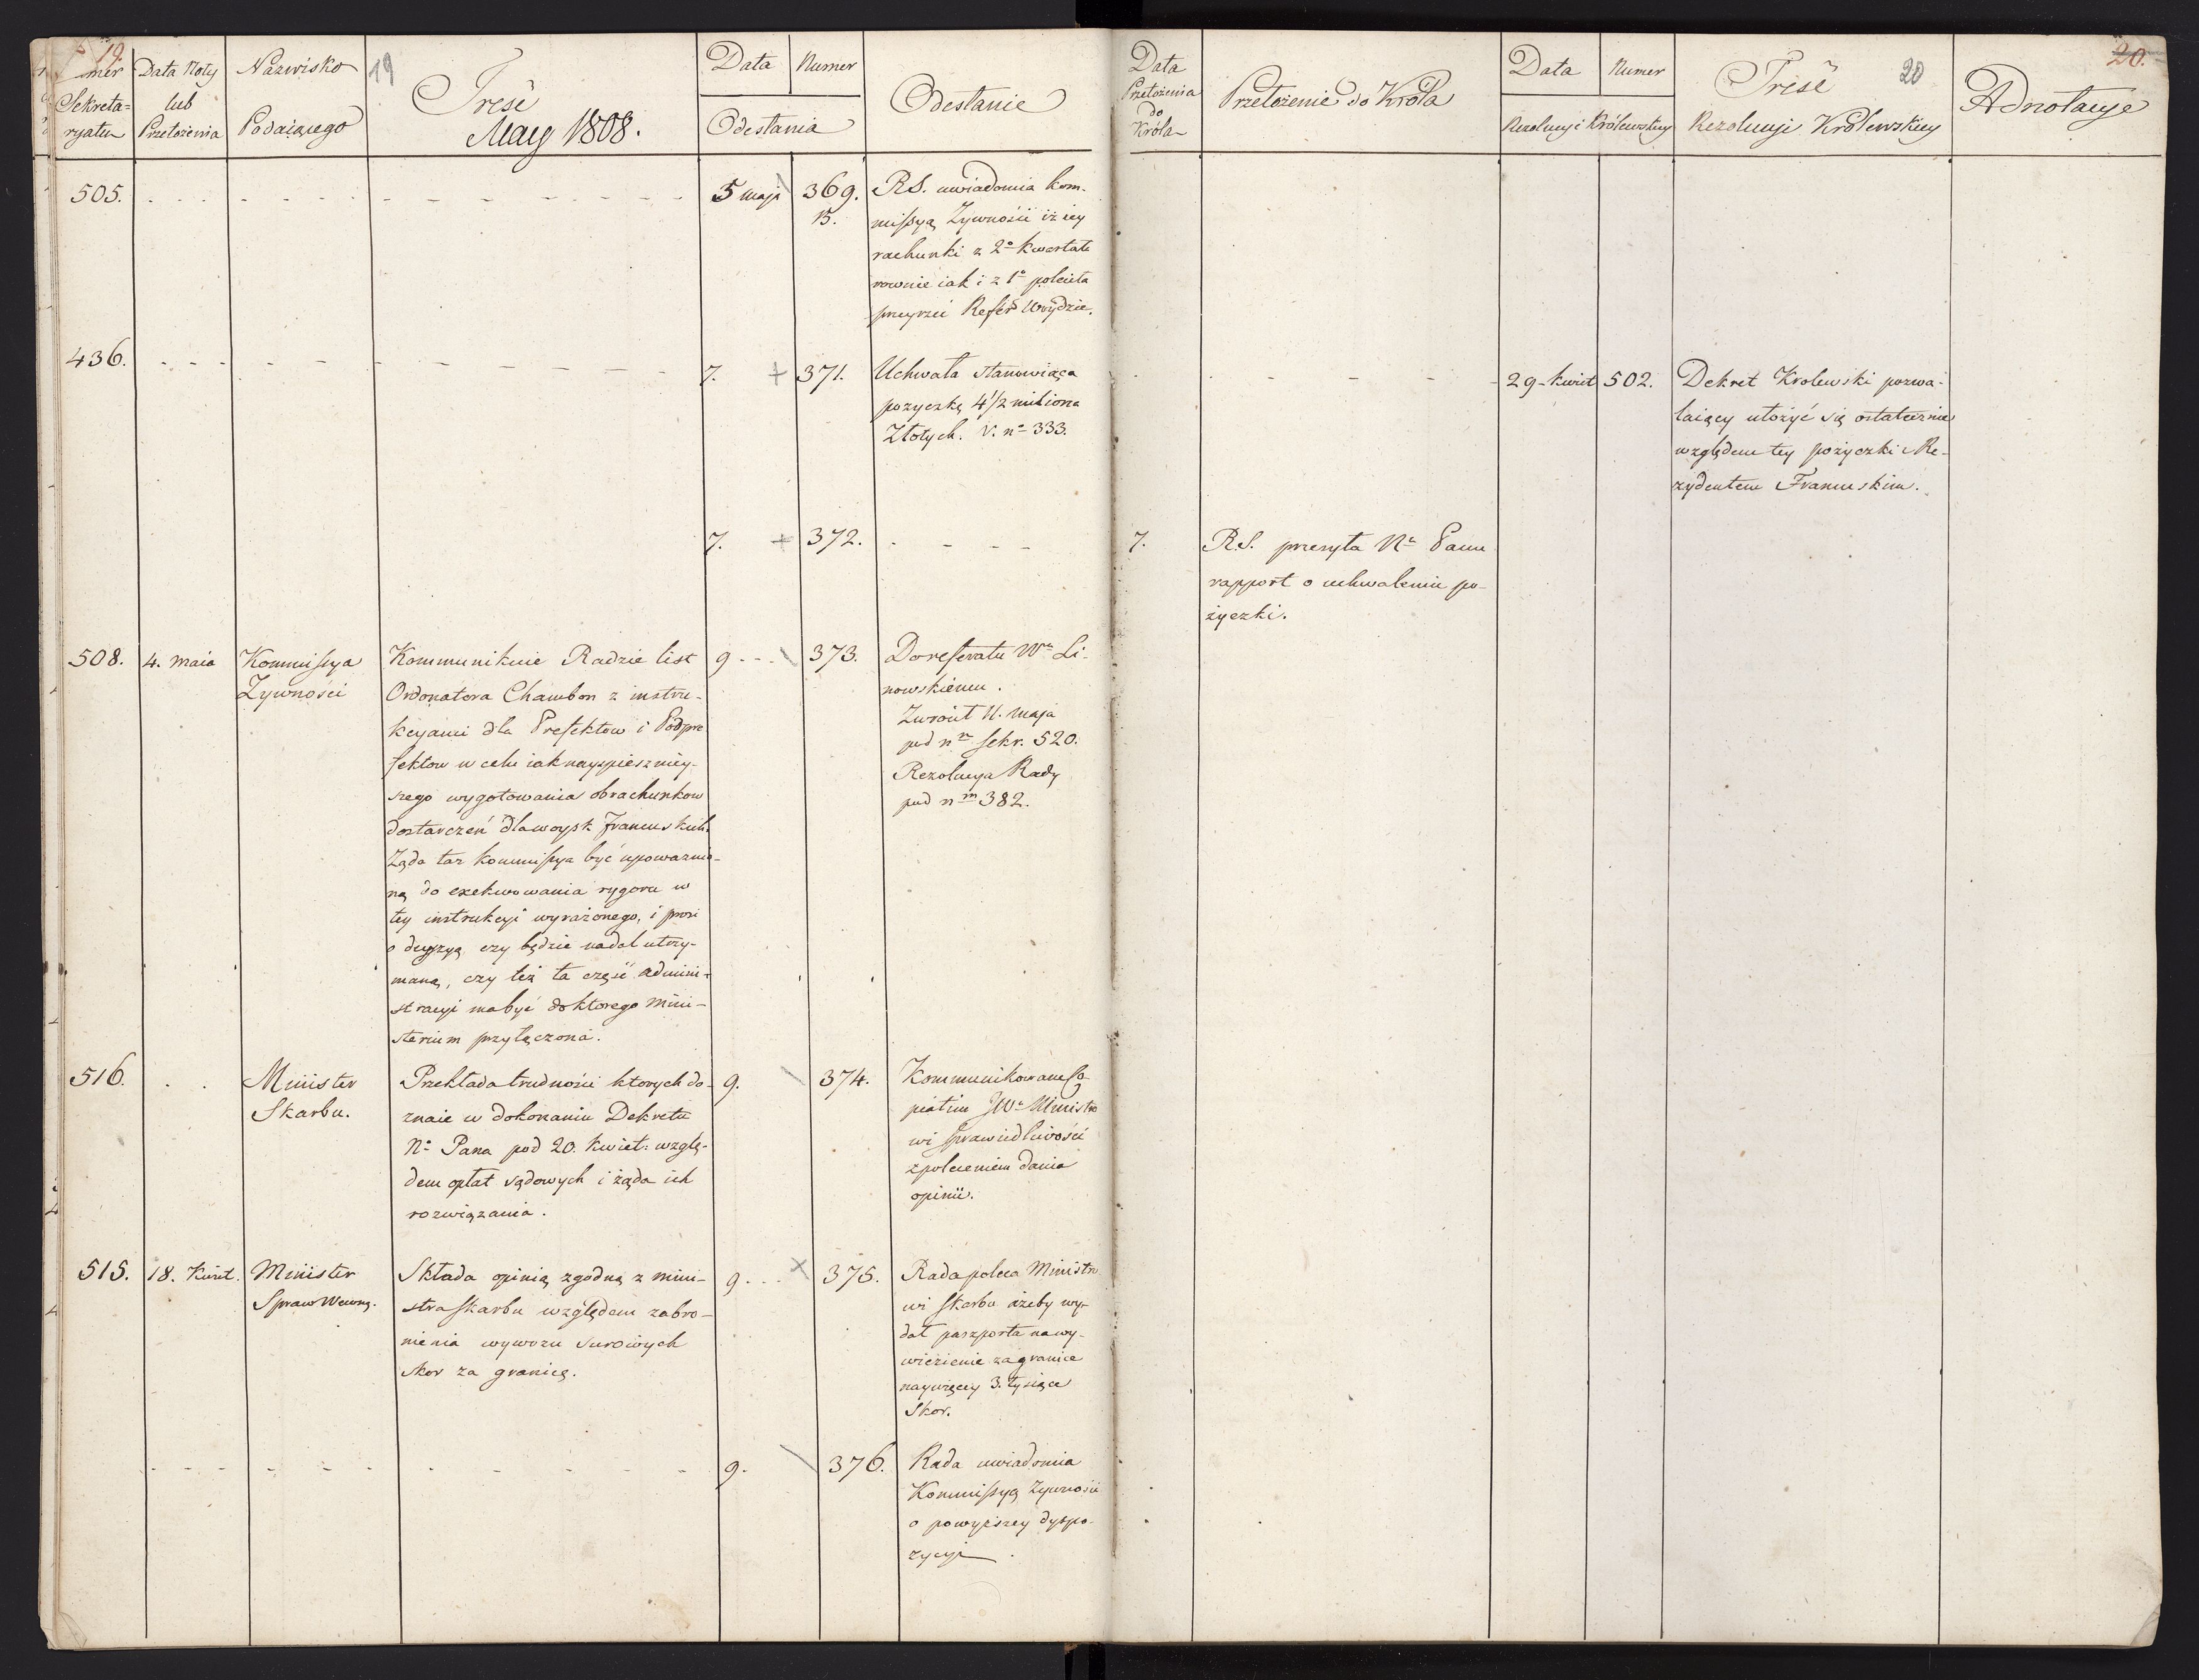 19.
Numer
Sekreta=
ryatu
Data Noty
lub
Przełożenia
Nazwisko
Podaiącego
19
Treść
May 1808.
Data
Numer
Odesłania
Odesłanie
505.
5 maja
369.
B.
R.S. uwiadomia kom-
missyą Zywności iż iey
rachunki z 2o kwartału
rownie iak i z 1o poleciła
przeyrzeć Refer: Urzędzie.
436.
7.
371.
Uchwała stanowiąca
pozyczkę 4 1/2 miliona
Złotych. V. no 333.
7.
372.
508.
4. maia
Kommissya
Zywności
Kommunikuie Radzie list
Ordonatora Chambon z instru-
kcyami dla Prefektow i Podpre
fektow w celu iak nayspieszniey-
szego wygotowania obrachunkow
dostarczeń dla woysk francuskich.
Ząda taz kommissya być upoważnio-
ną do exekwowania rygoru w
tey instrukcyi wyrażonego, i prosi
o decyzyą czy będzie nadal utrzy-
maną, czy też ta część admini-
stracyi ma być do ktorego mini-
sterium przyłączona.
9
373.
Do referatu Wu Li-
nowskiemu.
Zwrócił 11. maja
pod nm sekr. 520.
Rezolucya Rady
pod nm 382.
516.
Minister
Skarbu.
Przekłada trudności ktorych do-
znaie w dokonaniu Dekretu
No Pana pod 20. Kwiet: wzglę-
dem opłat sądowych i żąda ich
rozwiązania.
9.
374.
Kommunikowane co-
piatim JWu Ministro
wi sprawiedliwości
z poleceniem dania
opinii.
515.
18. Kwiet.
Minister
Spraw Wewnę.
Składa opinią zgodną z mini-
stra skarbu względem zabro-
nienia wywozu surowych
skor za granicę.
9
375.
Rada poleca Ministro
wi skarbu ażeby wy-
dał paszporta na wy-
wiezienie zagranice
naywięcey 3. tysiące
Skor.
9.
376.
Rada uwiadomia
Kommissyą Zywności
o powyższey dyspo-
zycyi.
Data
Przełożenia
do
Króla
Przełożenie do Króla
Data
Numer
Rezolucyi Królewskiey
20
Treść
Rezolucyi Królewskiey
20.
Adnotacye
29 kwiet
502.
Dekret Krolewski pozwa-
laiący ułożyć się ostatecznie
względem tey pożyczki z Re-
zydentem Francuskim.
7.
R.S. przesyła No Panu
rapport o uchwaleniu po-
życzki.